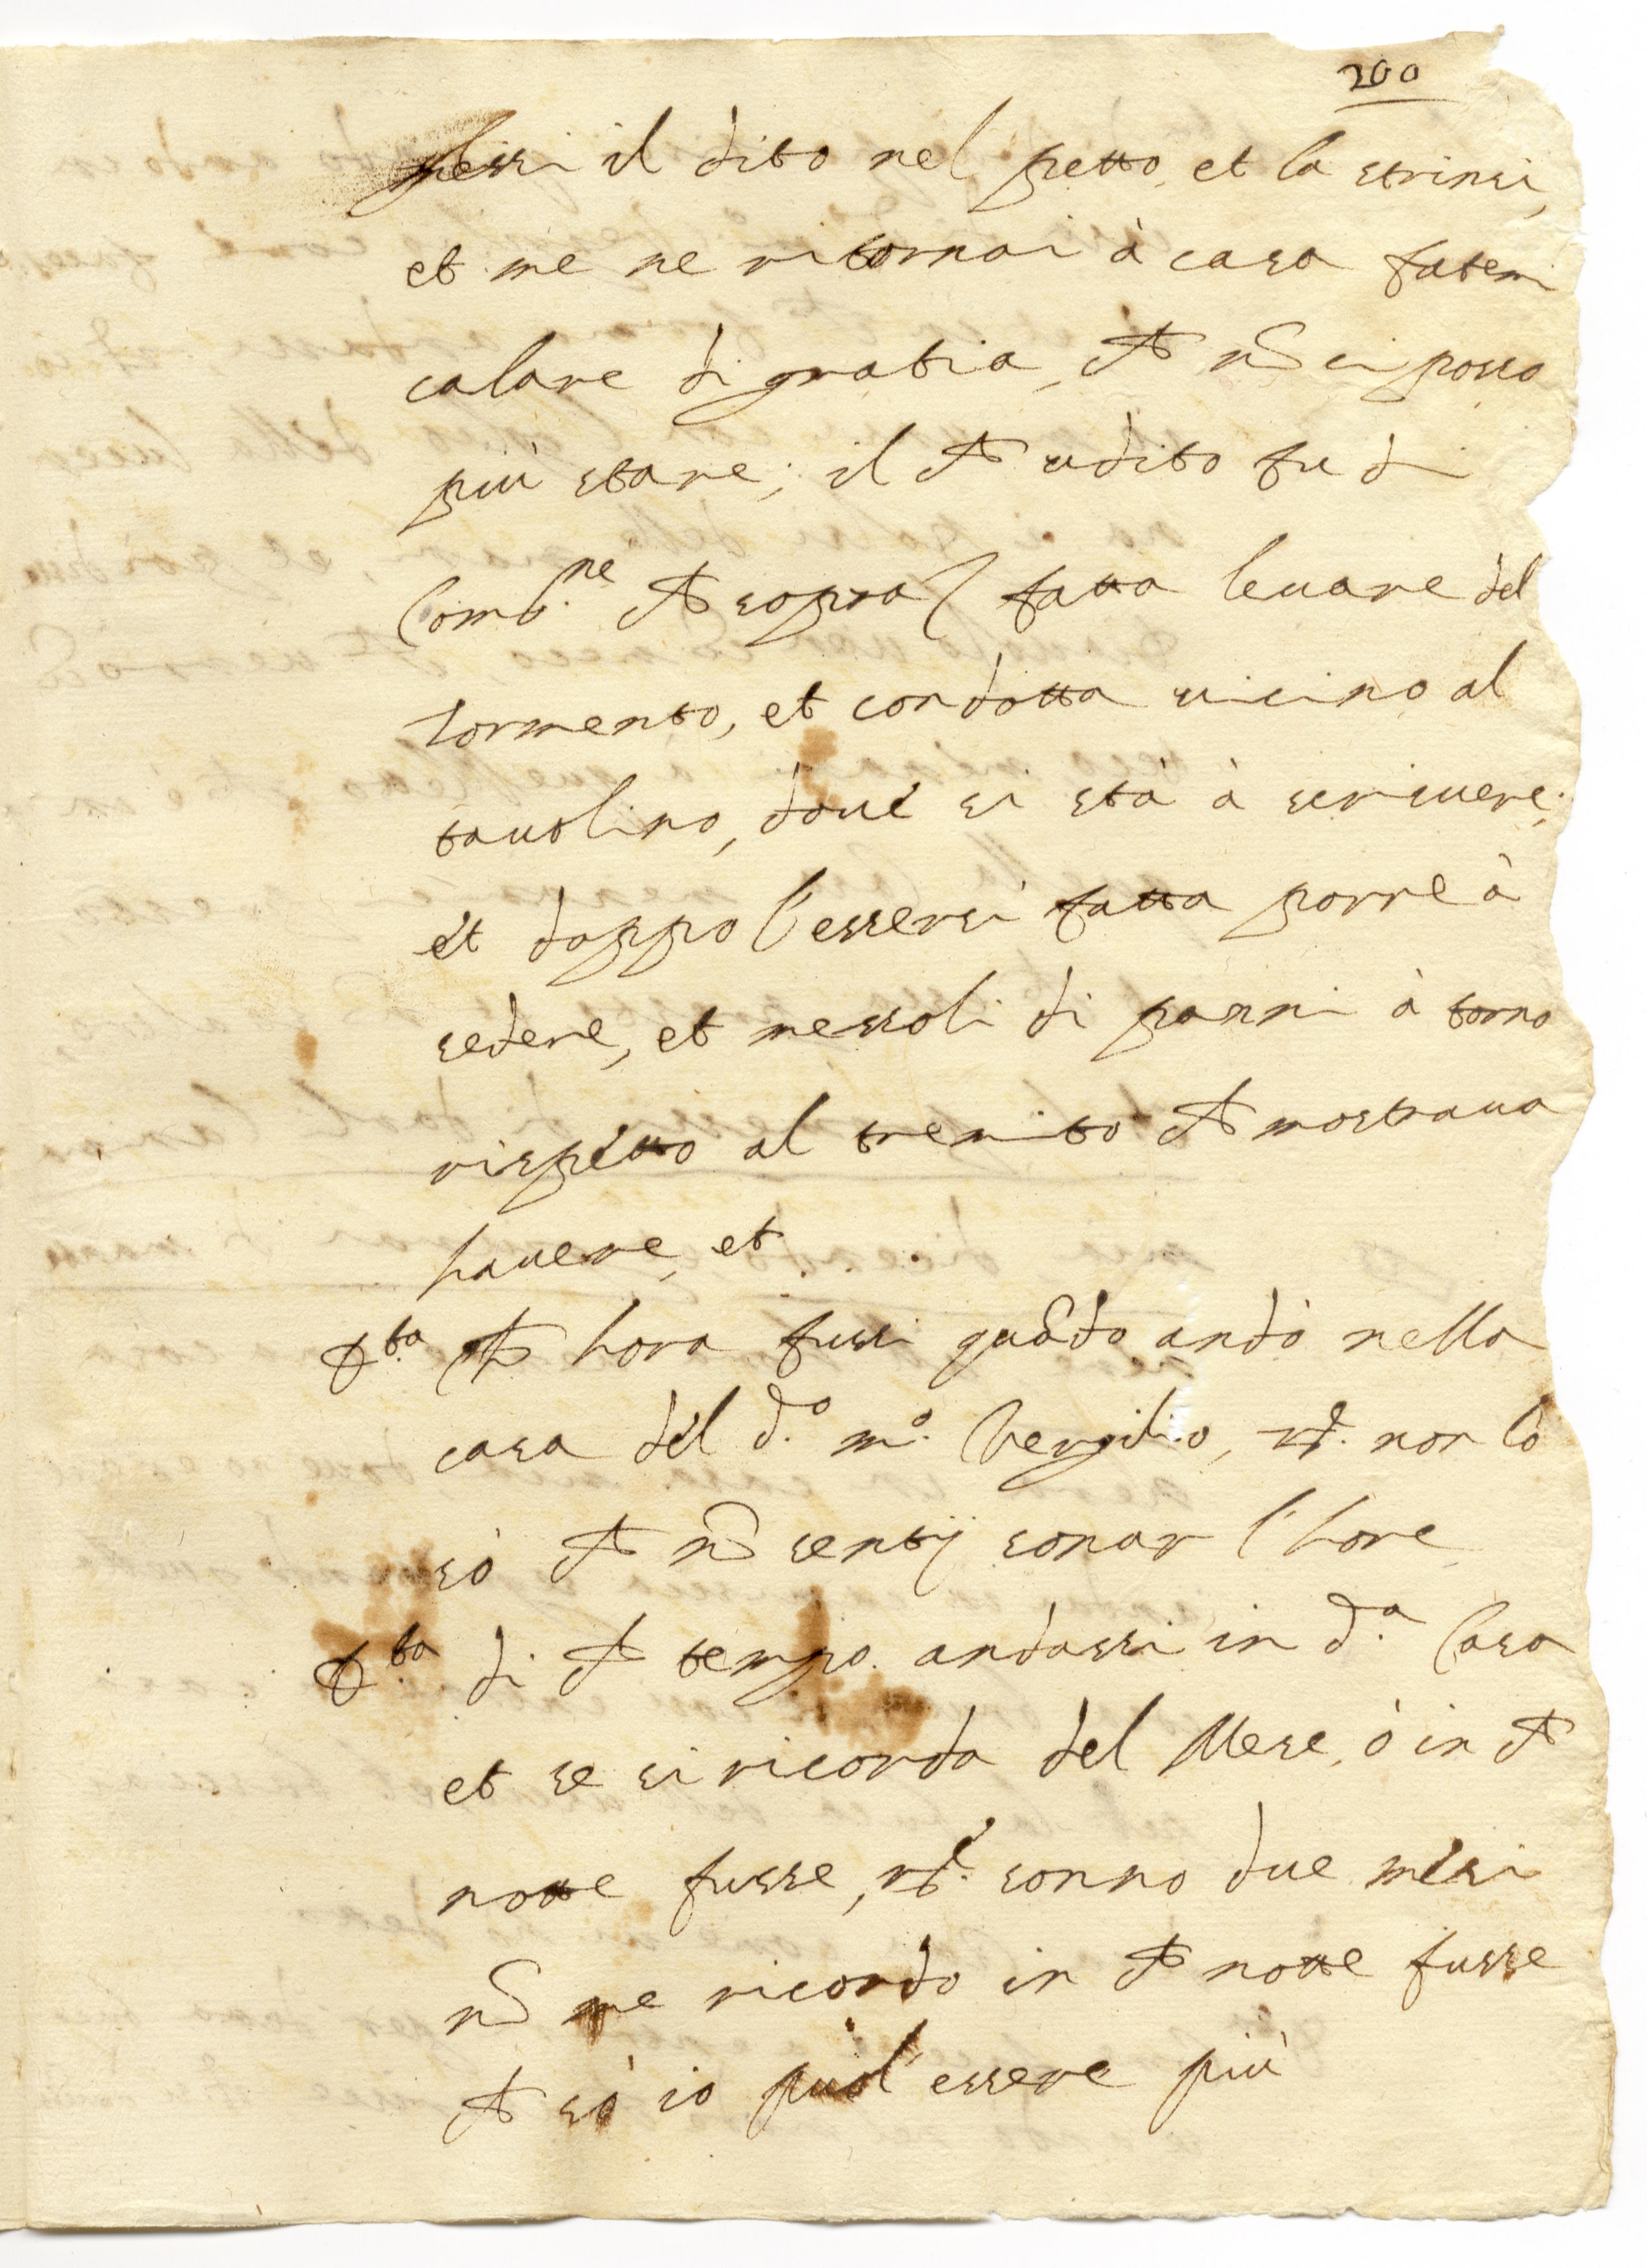 200
messi il dito nel petto, et la strinsi,
et me ne ritornai à casa fatemi
calare di gratia, ch nõ ci posso
più stare; il ch udito fu di
Com.ne ch sopra fatta leuare del
tormento, et condotta uicino al
tauolino, doue si stà à scriuere;
et doppo l'essersi fatta porre à
sedere, et messoli di panni à torno
rispetto al tremito ch mostraua
hauere, et
ch hora fussi quãdo andò nella
casa del d.º m.º Vergilio, rñ. non lo
sò ch nõ sentij sonar l'hore
di ch tempo andassi in d.ª Casa
et se si ricorda del Mese, ò in ch
notte fusse, rñ. sonno due mesi
nõ me ricordo in ch notte fusse
ch sò io puol essere più